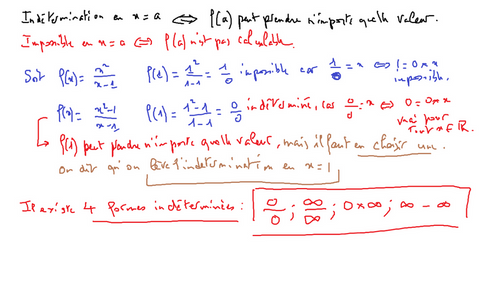 Indétermination en x = a ⇔ f(a) peut prendre n'importe quelle valeur.
Impossible en x = a ⇔ f(a) n'est pas calculable.
Soit f(x) = x²/(x-1) f(1) = 1²/(1-1) = 1/0 impossible car 1/0 = x ⇔ 1 = 0 × x impossible.
f(x) = (x²-1)/(x-1) f(1) = (1²-1)/(1-1) = 0/0 indéterminé, car 0/0 = x ⇔ 0 = 0 × x vrai pour tout x ∈ ℝ.
f(1) peut prendre n'importe quelle valeur, mais il faut en choisir une.
on dit qu'on lève l'indétermination en x = 1
Il existe 4 formes indéterminées : 0/0 ; ∞/∞ ; 0 × ∞ ; ∞ - ∞